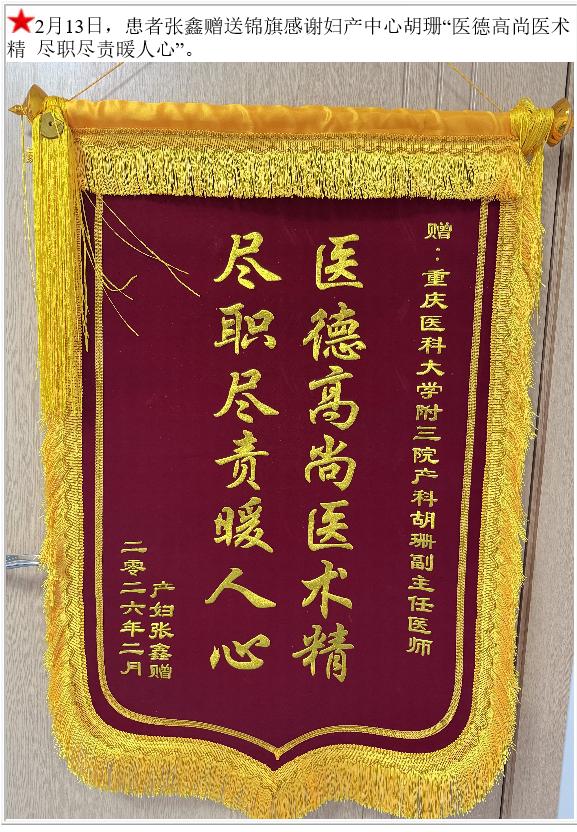 2月13日，患者张鑫赠送锦旗感谢妇产中心胡珊“医德高尚医术
精 尽职尽责暖人心”。
赠：重庆医科大学附三院产科胡珊副主任医师
医德高尚医术精
尽职尽责暖人心
产妇张鑫赠
二零二六年二月